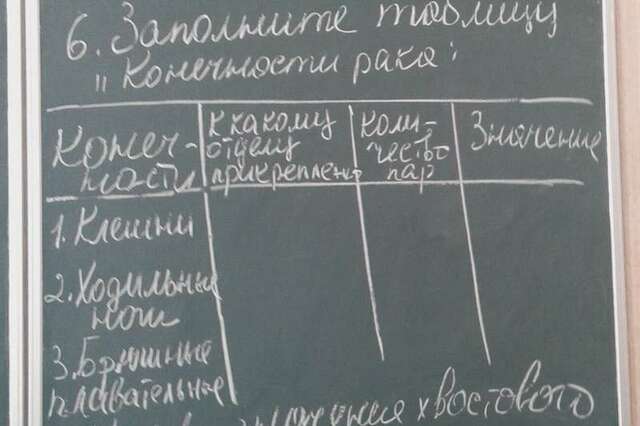 6. Заполните таблицу
"Конечности рака":
Конеч-
ности
к какому
отделу
прикреплены
Коли-
чество
пар
Значение
1. Клешни
2. Ходильные
ноги
3. Брюшные
плавательные
хвостового